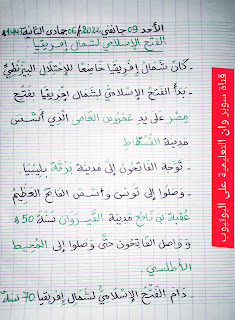 الأحد 09 جانفي 2022/ 06 جمادى الثانية 1443هـ
الفتح الإسلامي لشمال إفريقيا
- كان شمال إفريقيا خاضعا للاحتلال البيزنطي
- بدأ الفتح الإسلامي لشمال إفريقيا بفتح
مصر على يد عمرو بن العاص الذي أسس
مدينة الفسطاط
- توجه الفاتحون إلى مدينة برقة بليبيا.
- وصلوا إلى تونس وأسس الفاتح العظيم
عقبة بن نافع مدينة القيروان سنة 50هـ
- وواصل الفاتحون حتى وصلوا إلى المحيط
الأطلسي
- دام الفتح الإسلامي لشمال إفريقيا 70 سنة
قناة سوبر وان التعليمية على اليوتيوب